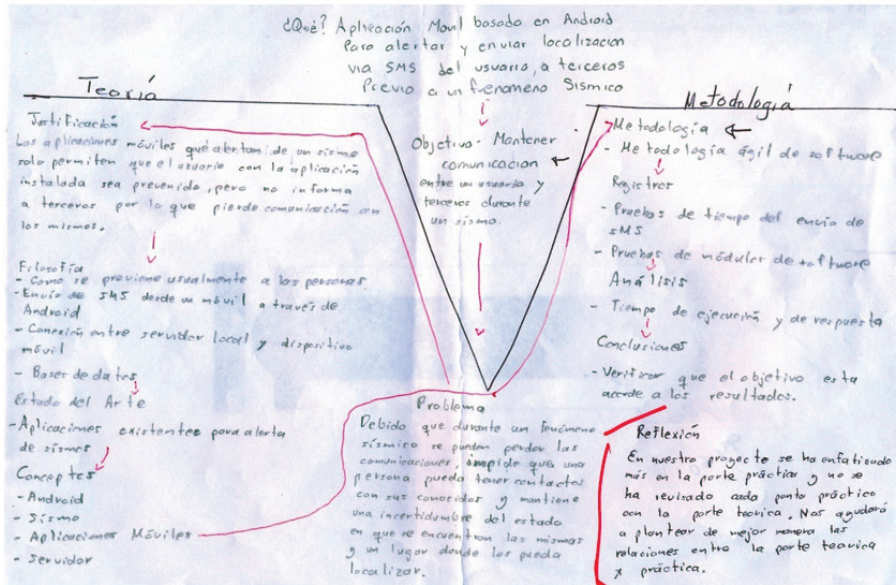 ¿Qué? Aplicación Movil basado en Android
Para alertar y enviar localizacion
via SMS del usuario, a terceros
Previo a un fuenomeno Sismico
Teoría
Justificación
Las aplicaciones móviles que alertan de un sismo
solo permiten que el usuario con la aplicación
instalada sea prevenido, pero no informa
a terceros por lo que pierde comunicación con
los mismos.
Filosofía
- Como se previene usualmente a las personas
- Envío de SMS desde un móvil a través de
Android
- Conexión entre servidor local y dispositivo
móvil
- Bases de datos
Estado del Arte
- Aplicaciones existentes para alerta
de sismos
Conceptos
- Android
- Sismo
- Aplicaciones Móviles
- Servidor
Objetivo - Mantener
comunicacion
entre un usuario y
terceros durante
un sismo.
Problema
Debido que durante un fenómeno
sísmico se pueden perder las
comunicaciones, impide que una
persona pueda tener contactos
con sus conocidos y mantiene
una incertidumbre del estado
en que se encuentran las mismas
y un lugar donde los pueda
localizar.
Metodología
Metodología
- Metodología ágil de software
Registros
- Pruebas de tiempo del envio de
SMS
- Pruebas de módulos de software
Análisis
- Tiempo de ejecución y de respuesta
Conclusiones
- Verificar que el objetivo esta
acorde a los resultados.
Reflexión
En nuestro proyecto se ha enfatizado
más en la parte práctica y no se
ha revisado cada punto práctico
con la parte teorica. Nos ayudará
a plantear de mejor manera las
relaciones entre la parte teorica
y práctica.